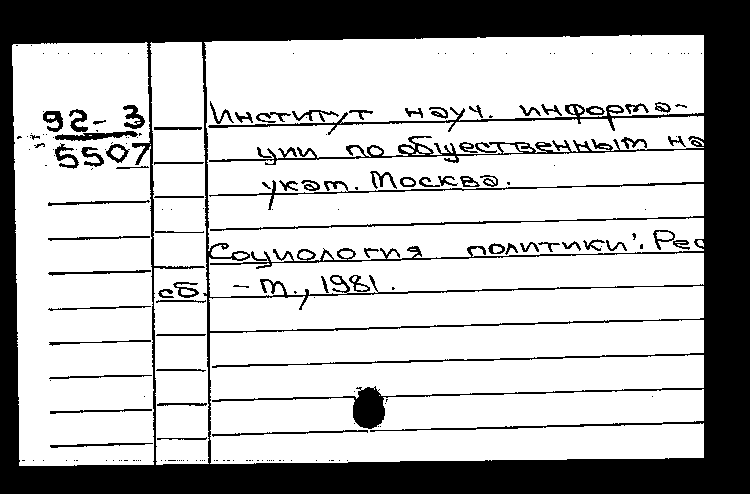 92-3
5507
Институт науч. информа-
ции по общественным на
укам. Москва.
Социология политики: Реф
сб. - М., 1981.